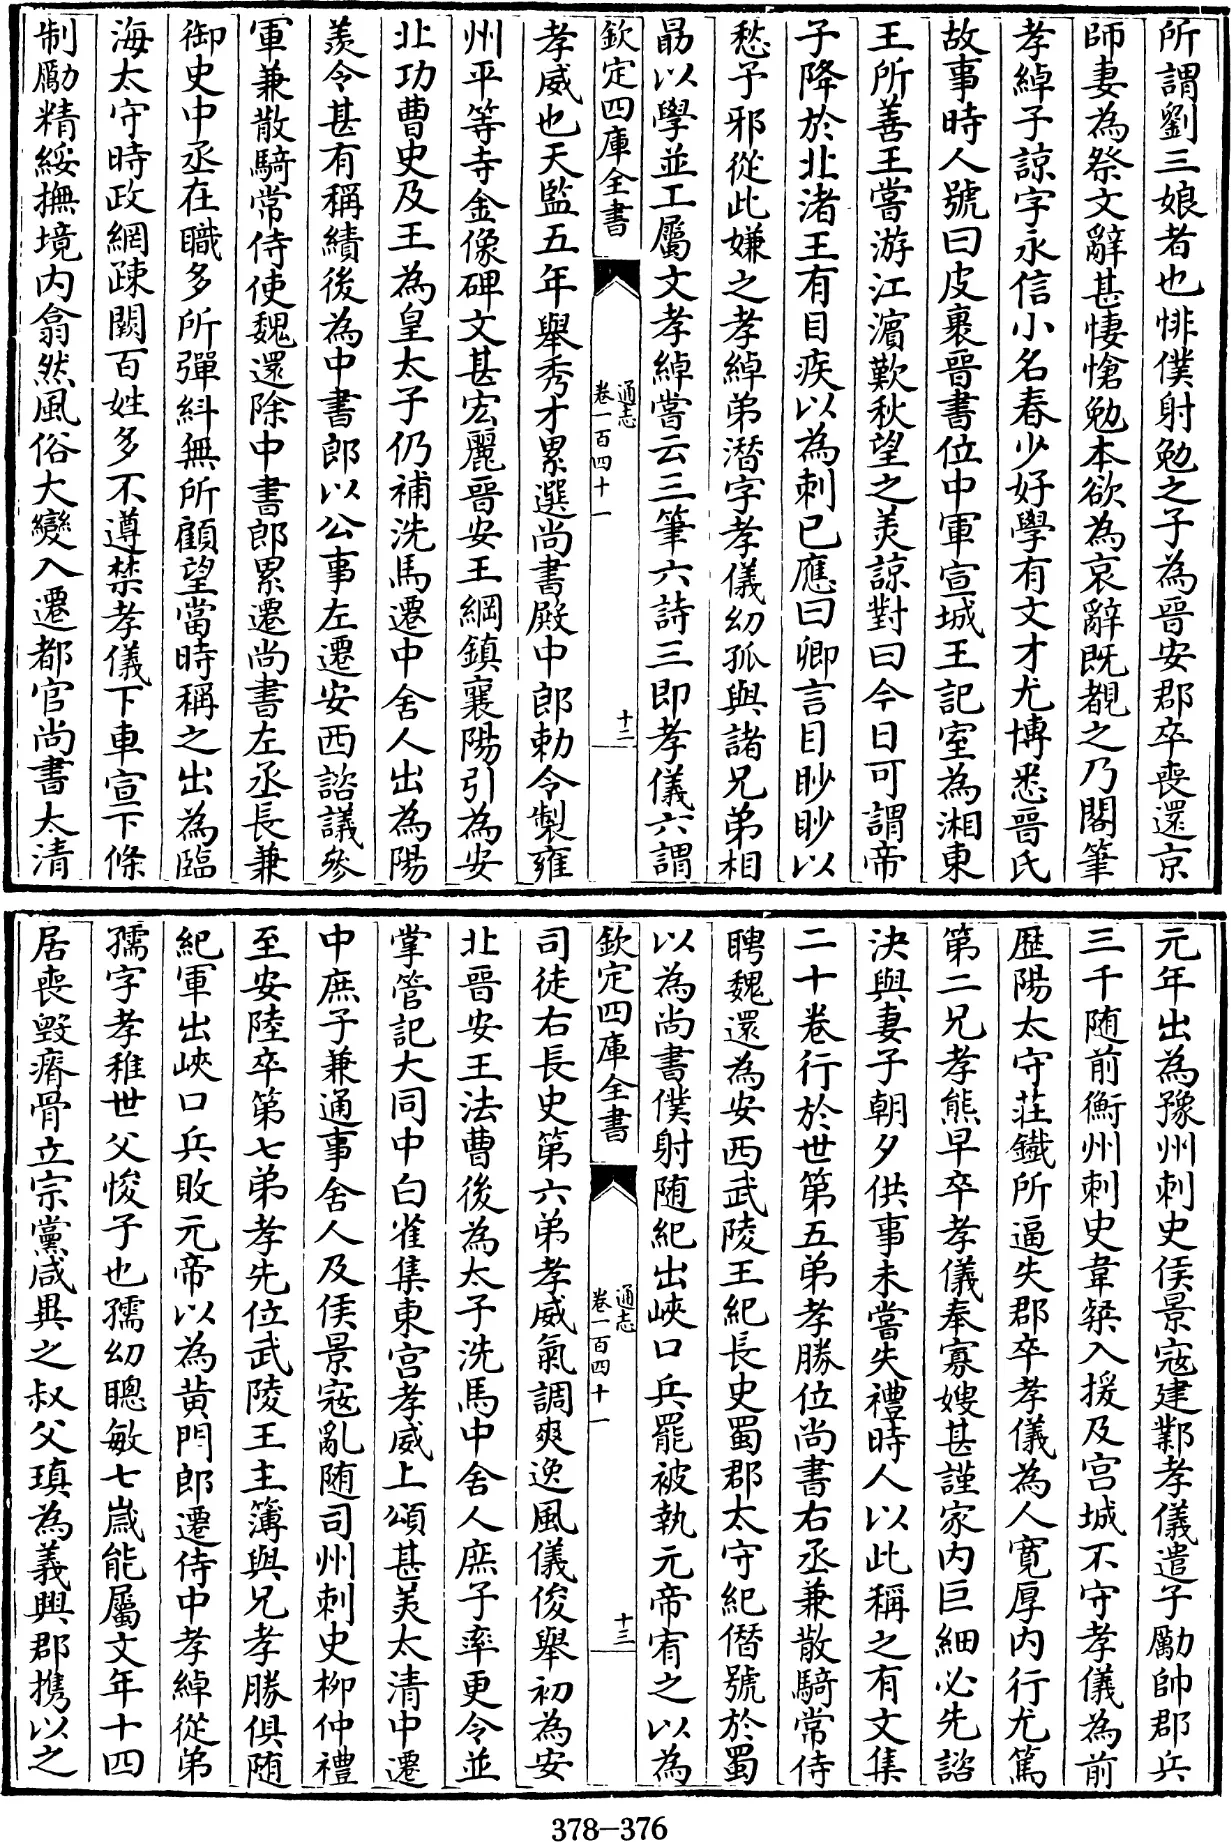 所謂劉三娘者也悱僕射勉之子為晉安郡卒喪還京
師妻為祭文辭甚悽愴勉本欲為哀辭既覩之乃閣筆
孝綽子諒字永信小名春少好學有文才尤博悉晉氏
故事時人號曰皮裏晉書位中軍宣城王記室為湘東
王所善王嘗游江濵歎秋望之美諒對曰今日可謂帝
子降於北渚王有目疾以為刺已應曰卿言目眇眇以
愁予邪從此嫌之孝綽弟潛字孝儀幼孤與諸兄弟相
勗以學並工屬文孝綽嘗云三筆六詩三即孝儀六謂
欽定四庫全書
通志
卷一百四十一
十二
孝威也天監五年舉秀才累選尚書殿中郎勅令製雍
州平等寺金像碑文甚宏麗晉安王綱鎮襄陽引為安
北功曹史及王為皇太子仍補洗馬遷中舍人出為陽
羨令甚有稱績後為中書郎以公事左遷安西諮議參
軍兼散騎常侍使魏還除中書郎累遷尚書左丞長兼
御史中丞在職多所彈糾無所顧望當時稱之出為臨
海太守時政網疎闊百姓多不遵禁孝儀下車宣下條
制勵精綏撫境内翕然風俗大變入遷都官尚書太清
元年出為豫州刺史侯景寇建鄴孝儀遣子勵帥郡兵
三千随前衡州刺史韋粲入援及宫城不守孝儀為前
歴陽太守莊鐵所逼失郡卒孝儀為人寛厚内行尤篤
第二兄孝熊早卒孝儀奉寡嫂甚謹家内巨細必先諮
決與妻子朝夕供事未嘗失禮時人以此稱之有文集
二十卷行於世第五弟孝勝位尚書右丞兼散騎常侍
聘魏還為安西武陵王紀長史蜀郡太守紀僭號於蜀
以為尚書僕射随紀出峽口兵罷被執元帝宥之以為
欽定四庫全書
通志
卷一百四十一
十三
司徒右長史第六弟孝威氣調爽逸風儀俊舉初為安
北晉安王法曹後為太子洗馬中舍人庶子率更令並
掌管記大同中白雀集東宫孝威上頌甚美太清中遷
中庶子兼通事舍人及侯景寇亂随司州刺史柳仲禮
至安陸卒第七弟孝先位武陵王主簿與兄孝勝俱随
紀軍出峽口兵敗元帝以為黄門郎遷侍中孝綽從弟
孺字孝稚世父悛子也孺幼聰敏七嵗能屬文年十四
居喪毁瘠骨立宗黨咸異之叔父瑱為義興郡攜以之
378-376